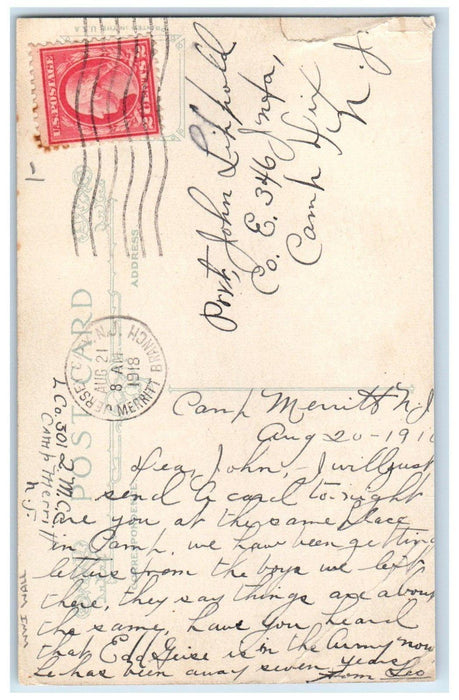 U.S. POSTAGE
2 CENTS 2
POST CARD
ADDRESS
CORRESPONDENCE
JERSEY
N.J.
MERRITT BRANCH
AUG 21
8 AM
1918
Pvt, John Lippold
Co. E. 346 Infa,
Camp Dix
N. J.
Camp Merritt N. J
Aug 20-191
Dear John,- I will just
send a card to-night
are you at the same place
in Camp, we have been getting
letters from the boys we left
there, they say things are about
the same, have you heard
that Edd Geise is in the Army now
he has been away seven years
from Leo
L Co, 301 Q M C
Camp Merritt
N. J